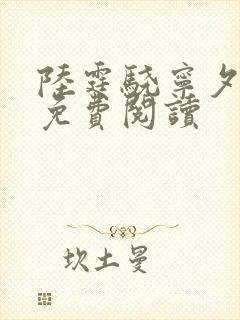 陸霆驍寧夕
免費閱讀
坎土曼